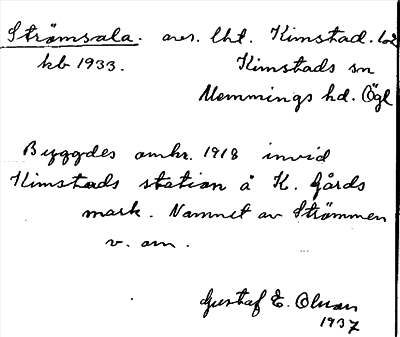 Strömsala. avs. lht. Kimstad. 1:2
kb 1933. Kimstads sn
Memmings hd. Ögl
Byggdes omkr. 1918 invid
Kimstads station å K. Gårds
mark. Namnet av Strömmen
v. om.
Gustaf E. Olsson
1937